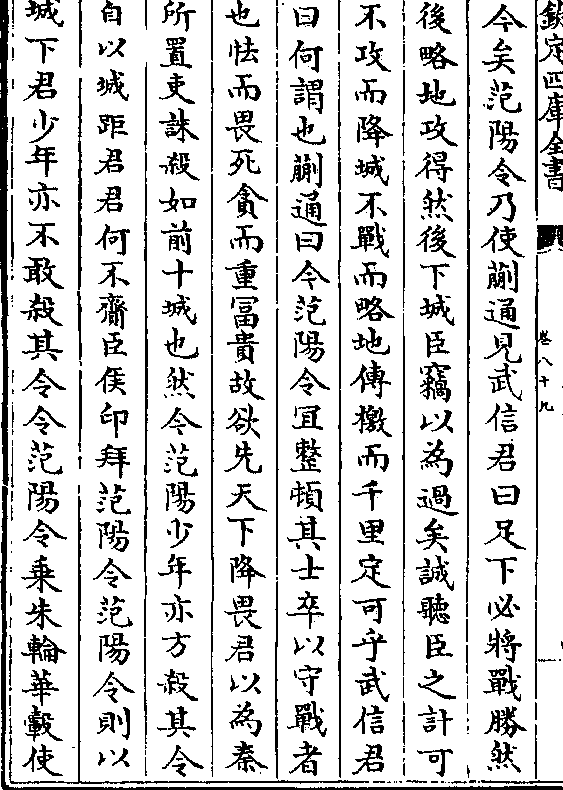 欽定四庫全書
卷八十九
今矣范陽令乃使蒯通見武信君曰足下必將戰勝然
後略地攻得然後下城臣竊以為過矣誠聽臣之計可
不攻而降城不戰而略地傳檄而千里定可乎武信君
曰何謂也蒯通曰今范陽令宜整頓其士卒以守戰者
也怯而畏死貪而重冨貴故欲先天下降畏君以為秦
所置吏誅殺如前十城也然今范陽少年亦方殺其令
自以城距君君何不齎臣侯印拜范陽令范陽令則以
城下君少年亦不敢殺其令令范陽令乗朱輪華轂使